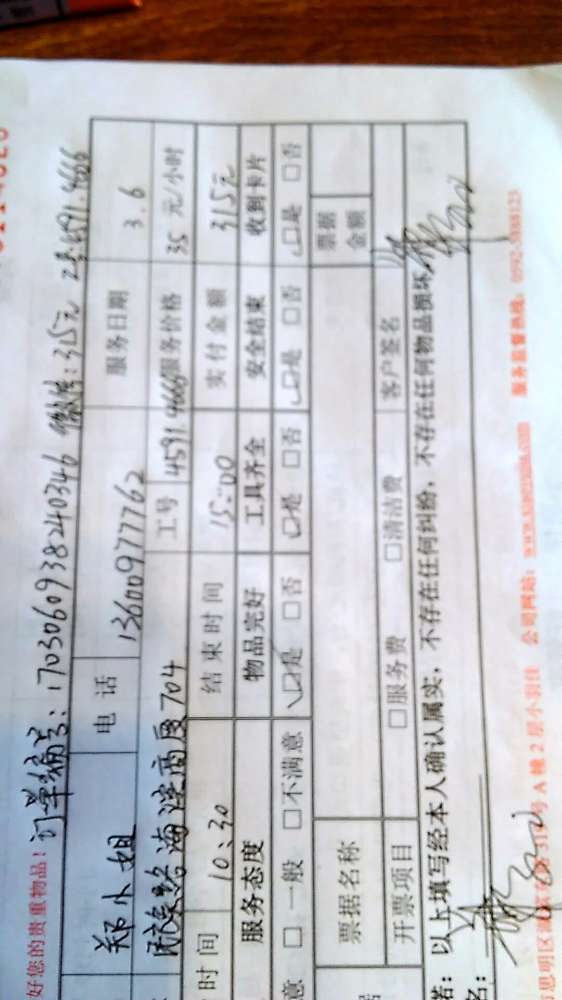 好您的贵重物品！订单编号：1703060938240346 微信：315元
郑小姐 电话 13600977762 服务日期 3.6
海滢高度704 工号 4591.4666 服务价格 35元/小时
时间 10:30 结束时间 15:00 实付金额 315元
服务态度 物品完好 工具齐全 安全结束 收到卡片
意 □一般 □不满意 □是 □否 □是 □否 □是 □否 □是 □否
票据名称 票据金额
开票项目 □服务费 □清洁费 客户签名
诺：以上填写经本人确认属实，不存在任何纠纷，不存在任何物品损坏，
名：
思明区 号A幢2层 公司网站： 服务监督热线：0592-5888123